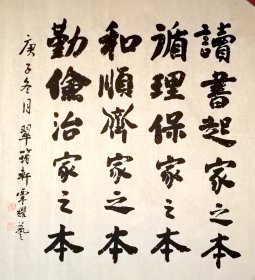 讀書起家之本
循理保家之本
和順齊家之本
勤儉治家之本
庚子冬月翠筠軒覃耀藝